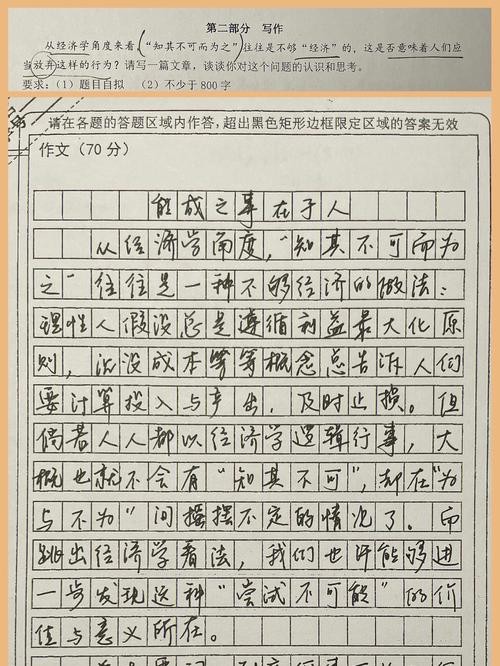 第二部分 写作
从经济学角度来看，“知其不可而为之”往往是不够“经济”的，这是否意味着人们应
当放弃这样的行为？请写一篇文章，谈谈你对这个问题的认识和思考。
要求：（1）题目自拟 （2）不少于 800 字
请在各题的答题区域内作答，超出黑色矩形边框限定区域的答案无效
作文（70 分）
能成之事在于人
从经济学角度，“知其不可而为
之”往往是一种不够经济的做法：
理性人假设总是遵循利益最大化原
则，沉没成本等概念总告诉人们
要计算投入与产出，及时止损。但
倘若人人都以经济学逻辑行事，大
概也就不会有“知其不可”，却在“为
与不为”间摇摆不定的情况了。而
跳出经济学看法，我们也许能够进
一步发现这种“尝试不可能”的价
值与意义所在。